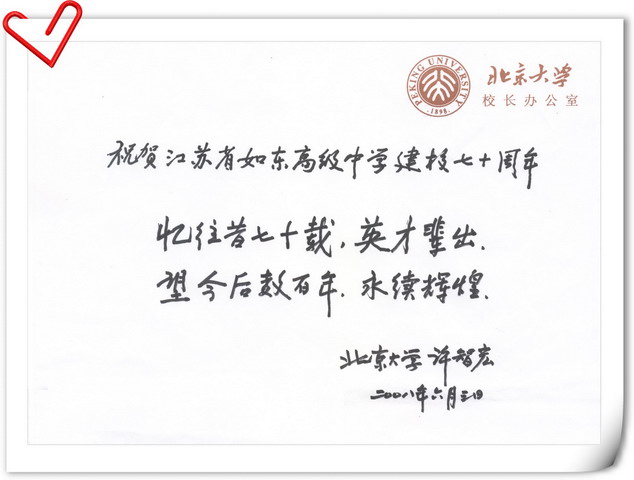 PEKING UNIVERSITY
1898
北京大学
校长办公室
祝贺江苏省如东高级中学建校七十周年
忆往昔七十载，英才辈出．
望今后数百年．永续辉煌．
北京大学 许智宏
二〇〇八年六月三日